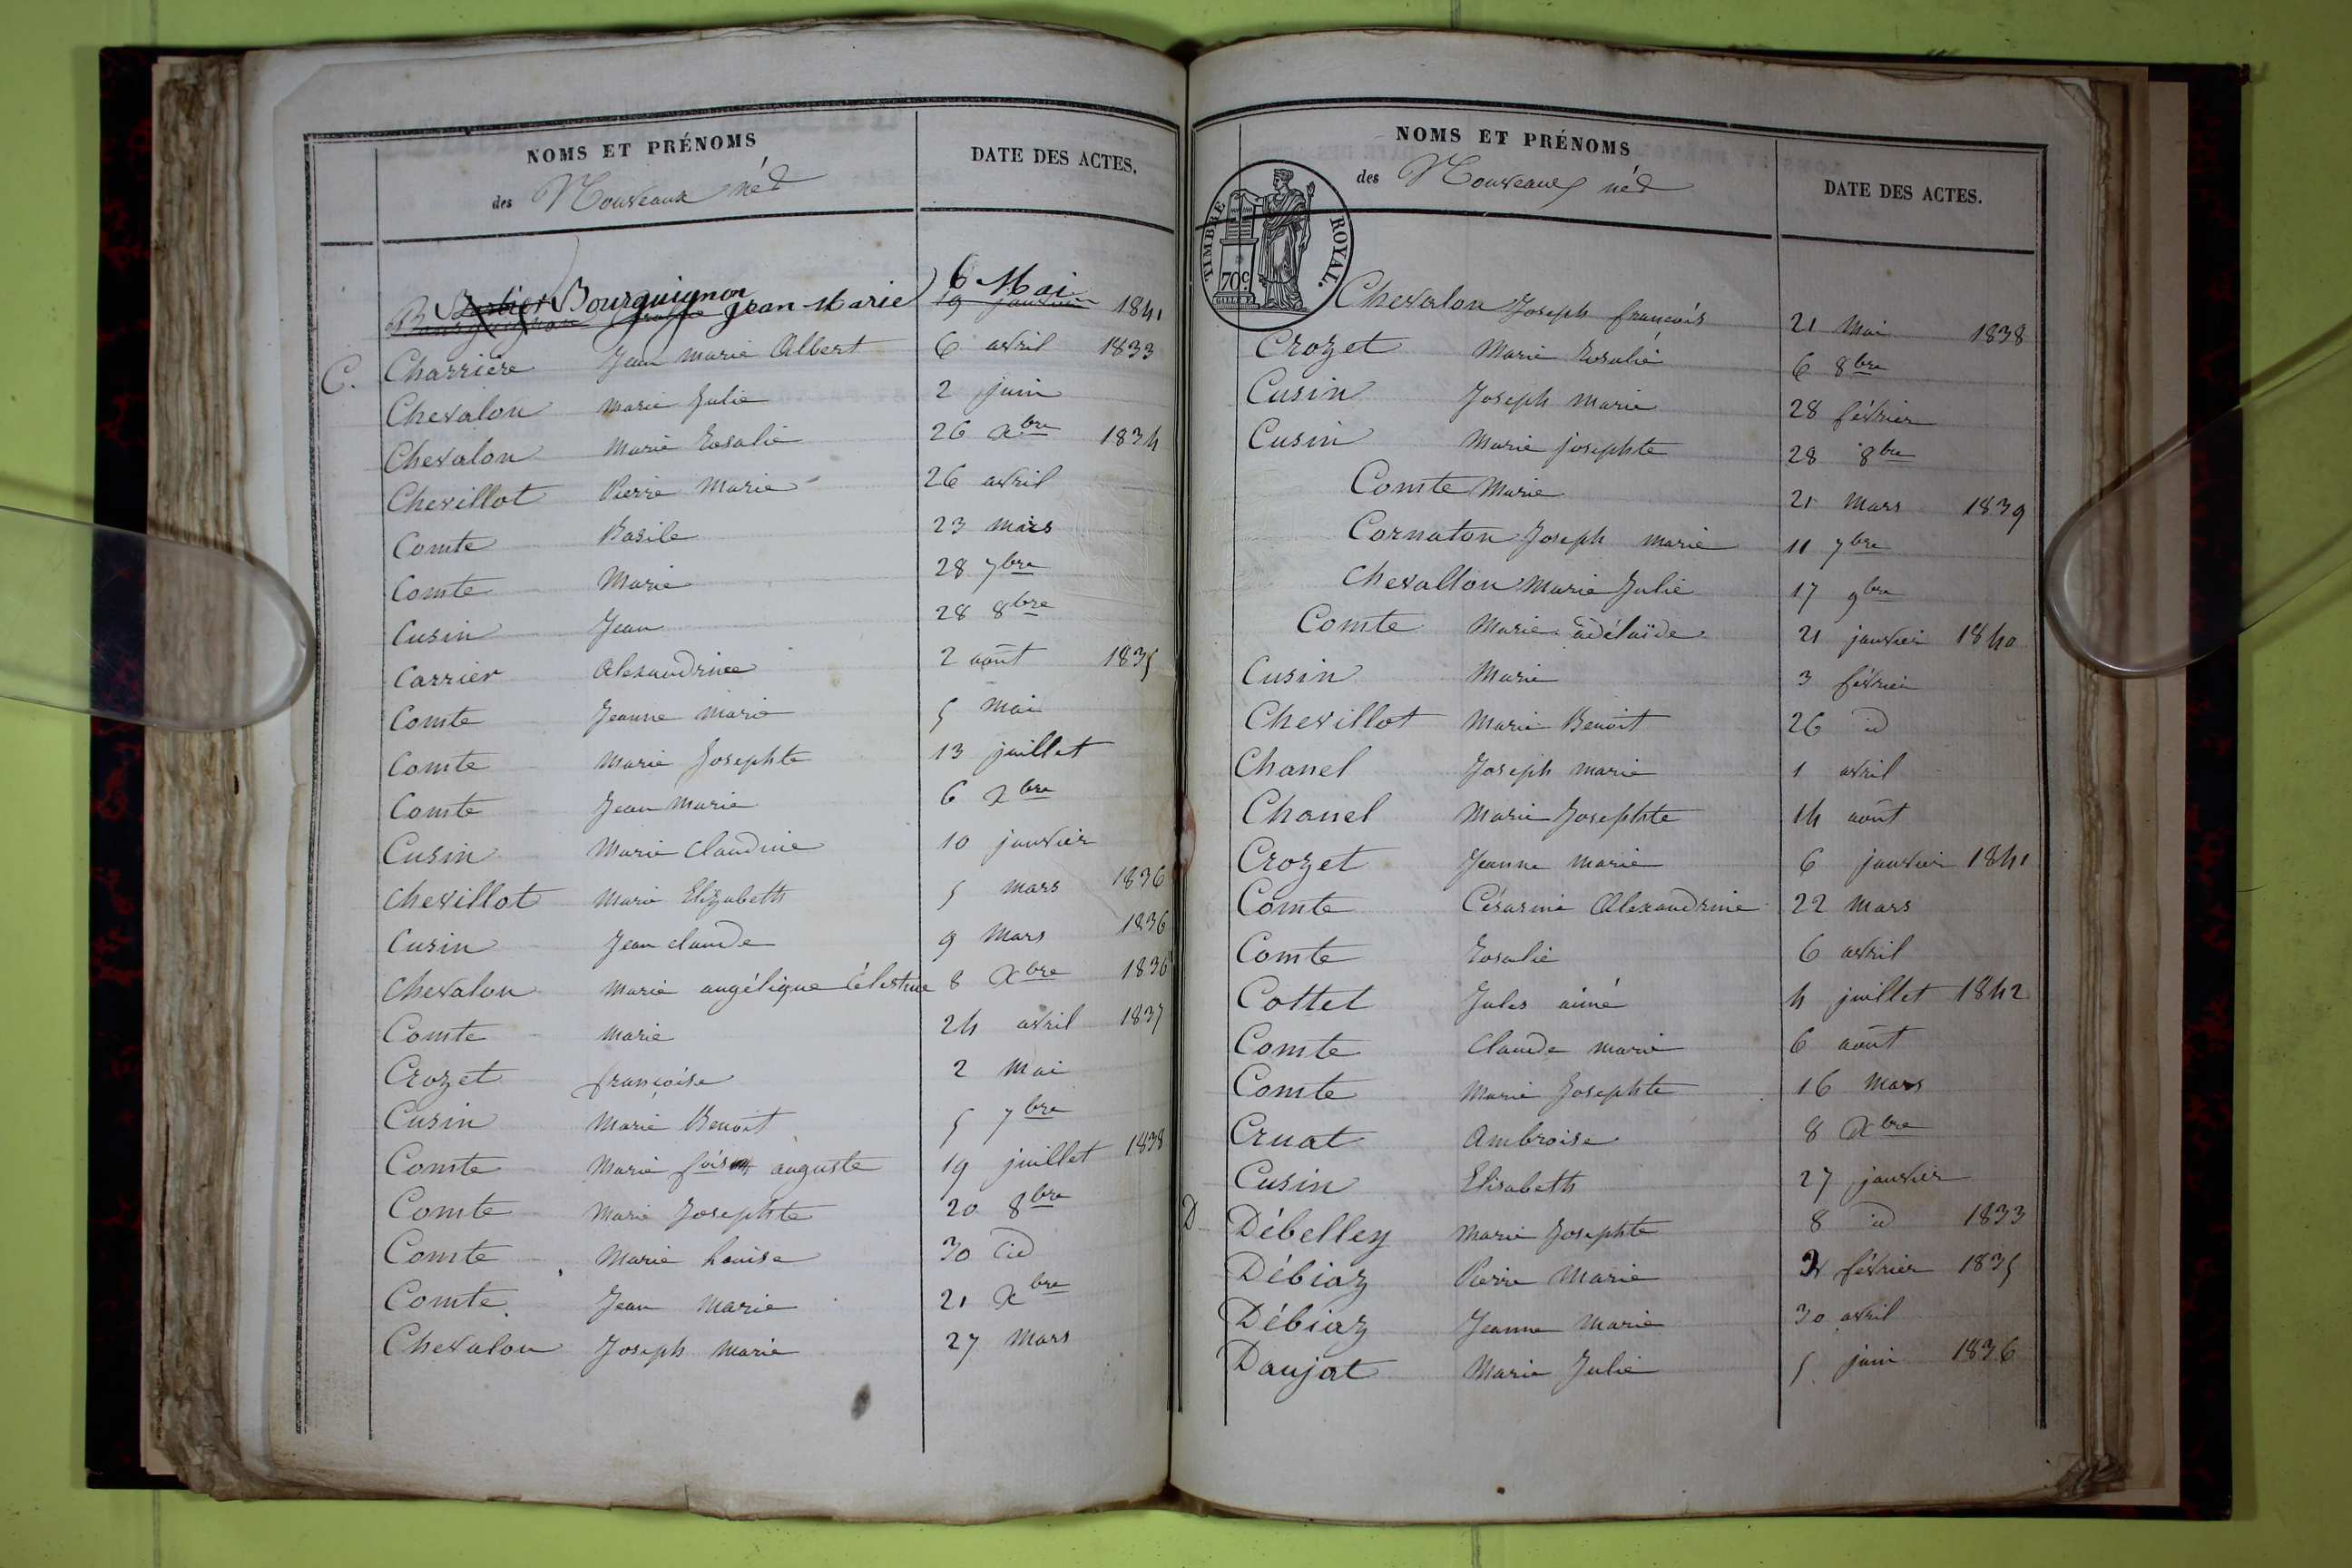 NOMS ET PRÉNOMS
des Nouveaux nés
DATE DES ACTES.
Bourguignon Jean-Marie 6 Mai 1841
C. Charriere Jean marie Albert 6 avril 1833
Chevalon marie Julie 2 juin
Chevalon Marie Rosalie 26 Xbre 1834
Chevillot Pierre Marie 26 avril
Comte Basile 23 mars
Comte Marie 28 7bre
Cusin Jean 28 8bre
Carrier Alexandrine 2 août 1835
Comte Jeanne Marie 5 mai
Comte Marie Josephte 13 juillet
Comte Jean Marie 6 Xbre
Cusin Marie Claudine 10 janvier
Chevillot Marie Elizabeth 5 mars 1836
Cusin Jean claude 9 Mars 1836
Chevalon Marie angélique Célestine 8 Xbre 1836
Comte Marie 24 avril 1837
Crozet françoise 2 Mai
Cusin Marie Benoit 5 7bre
Comte Marie fois auguste 19 juillet 1838
Comte Marie Josephte 20 8bre
Comte Marie Louise 30 id
Comte Jean Marie 21 Xbre
Chevalon Joseph Marie 27 Mars
NOMS ET PRÉNOMS
des Nouveaux nés
DATE DES ACTES.
TIMBRE ROYAL.
70c
Chevalon Joseph françois 21 Mai 1838
Crozet Marie Rosalie 6 8bre
Cusin Joseph Marie 28 février
Cusin Marie josephte 28 8bre
Comte Marie 21 Mars 1839
Cornaton Joseph marie 11 7bre
Chevallon Marie Julie 17 9bre
Comte Marie adélaïde 21 janvier 1840
Cusin Marie 3 février
Chevillot Marie Benoit 26 id
Chanel Joseph marie 1 avril
Chanel Marie Josephte 14 août
Crozet Jeanne Marie 6 janvier 1841
Comte Césarine Alexandrine 22 Mars
Comte Rosalie 6 avril
Cottet Jules aimé 4 juillet 1842
Comte Claude marie 6 août
Comte Marie Josephte 16 Mars
Cruat Ambroise 8 Xbre
Cusin Elisabeth 27 janvier
D Débelley Marie Josephte 8 id 1833
Débiaz Pierre Marie février 1835
Débiaz Jeanne Marie 30 avril
Daujat Marie Julie 5 juin 1836